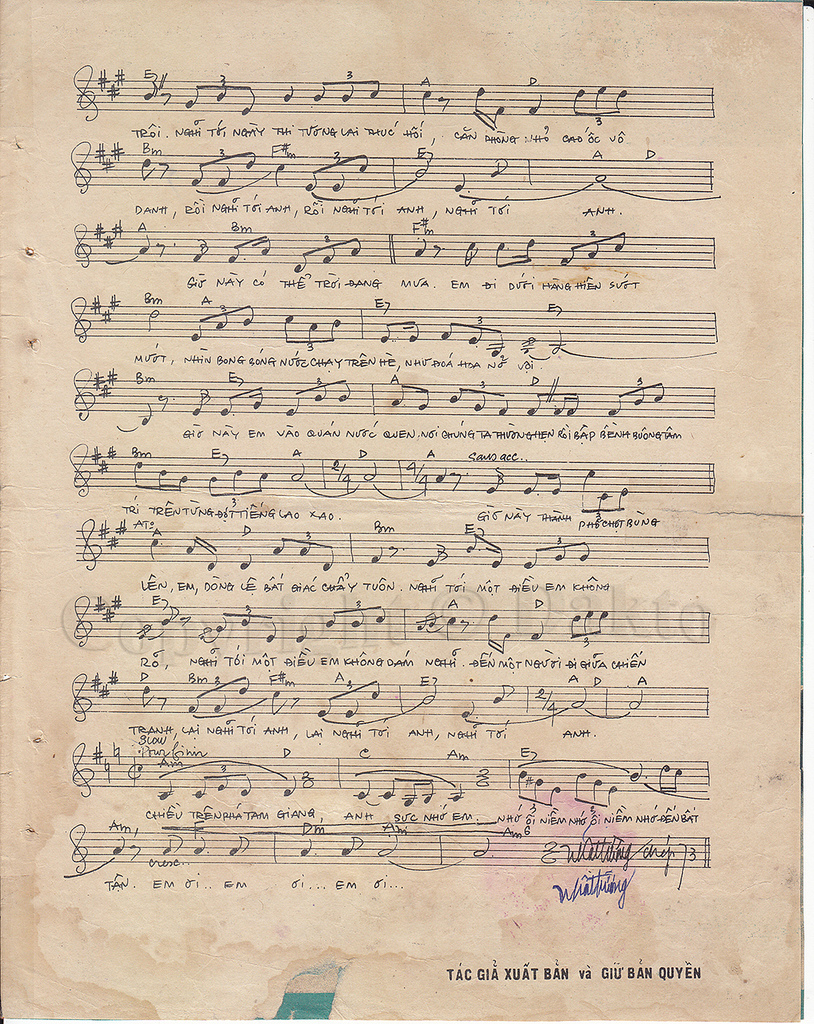 E7 A D
TRÔI. NGHĨ TỚI NGÀY THI TƯƠNG LAI THÚC HỐI, CĂN PHÒNG NHỎ CAO ỐC VÔ
Bm F#m E7 A D
DANH, RỒI NGHĨ TỚI ANH, RỒI NGHĨ TỚI ANH, NGHĨ TỚI ANH.
A Bm F#m
GIỜ NÀY CÓ THỂ TRỜI ĐANG MƯA. EM ĐI DƯỚI HÀNG HIÊN SƯỚT
Bm A E7 E7
MƯỚT, NHÌN BONG BÓNG NƯỚC CHẠY TRÊN HÈ, NHƯ ĐOÁ HOA NỞ VỘI.
Bm E7 A D
GIỜ NÀY EM VÀO QUÁN NƯỚC QUEN, NƠI CHÚNG TA THƯỜNG HẸN RỒI BẬP BỀNH BUÔNG TÂM
Bm E7 A D A sans acc..
TRÍ TRÊN TỪNG ĐỢT TIẾNG LAO XAO. GIỜ NÀY THÀNH PHỐ CHỢT BÙNG
ATo Bm E7
LÊN, EM, DÒNG LỆ BẤT GIÁC CHẢY TUÔN. NGHĨ TỚI MỘT ĐIỀU EM KHÔNG
E7 A D
RÕ, NGHĨ TỚI MỘT ĐIỀU EM KHÔNG DÁM NGHĨ. ĐẾN MỘT NGƯỜI ĐI GIỮA CHIẾN
D Bm F#m E7 A D A
TRANH, LẠI NGHĨ TỚI ANH, LẠI NGHĨ TỚI ANH, NGHĨ TỚI ANH.
Slow
Pour finir
Am D C Am E7
CHIỀU TRÊN PHÁ TAM GIANG, ANH SỰC NHỚ EM. NHỚ ÔI NIỀM NHỚ ÔI NIỀM NHỚ ĐẾN BẤT
Am, Dm Am Am6
cresc..
TẬN. EM ƠI.. EM ƠI... EM ƠI...
Nhattường chép 73
Nhattường
TÁC GIẢ XUẤT BẢN và GIỮ BẢN QUYỀN
Copyright © Dakto